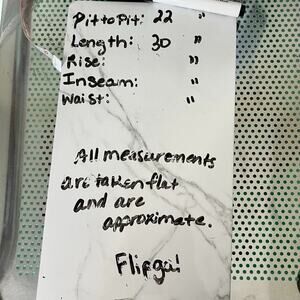 Pit to Pit: 22 "
Length: 30 "
Rise: "
Inseam: "
Waist: "
All measurements
are taken flat
and are
approximate.
Flipgal